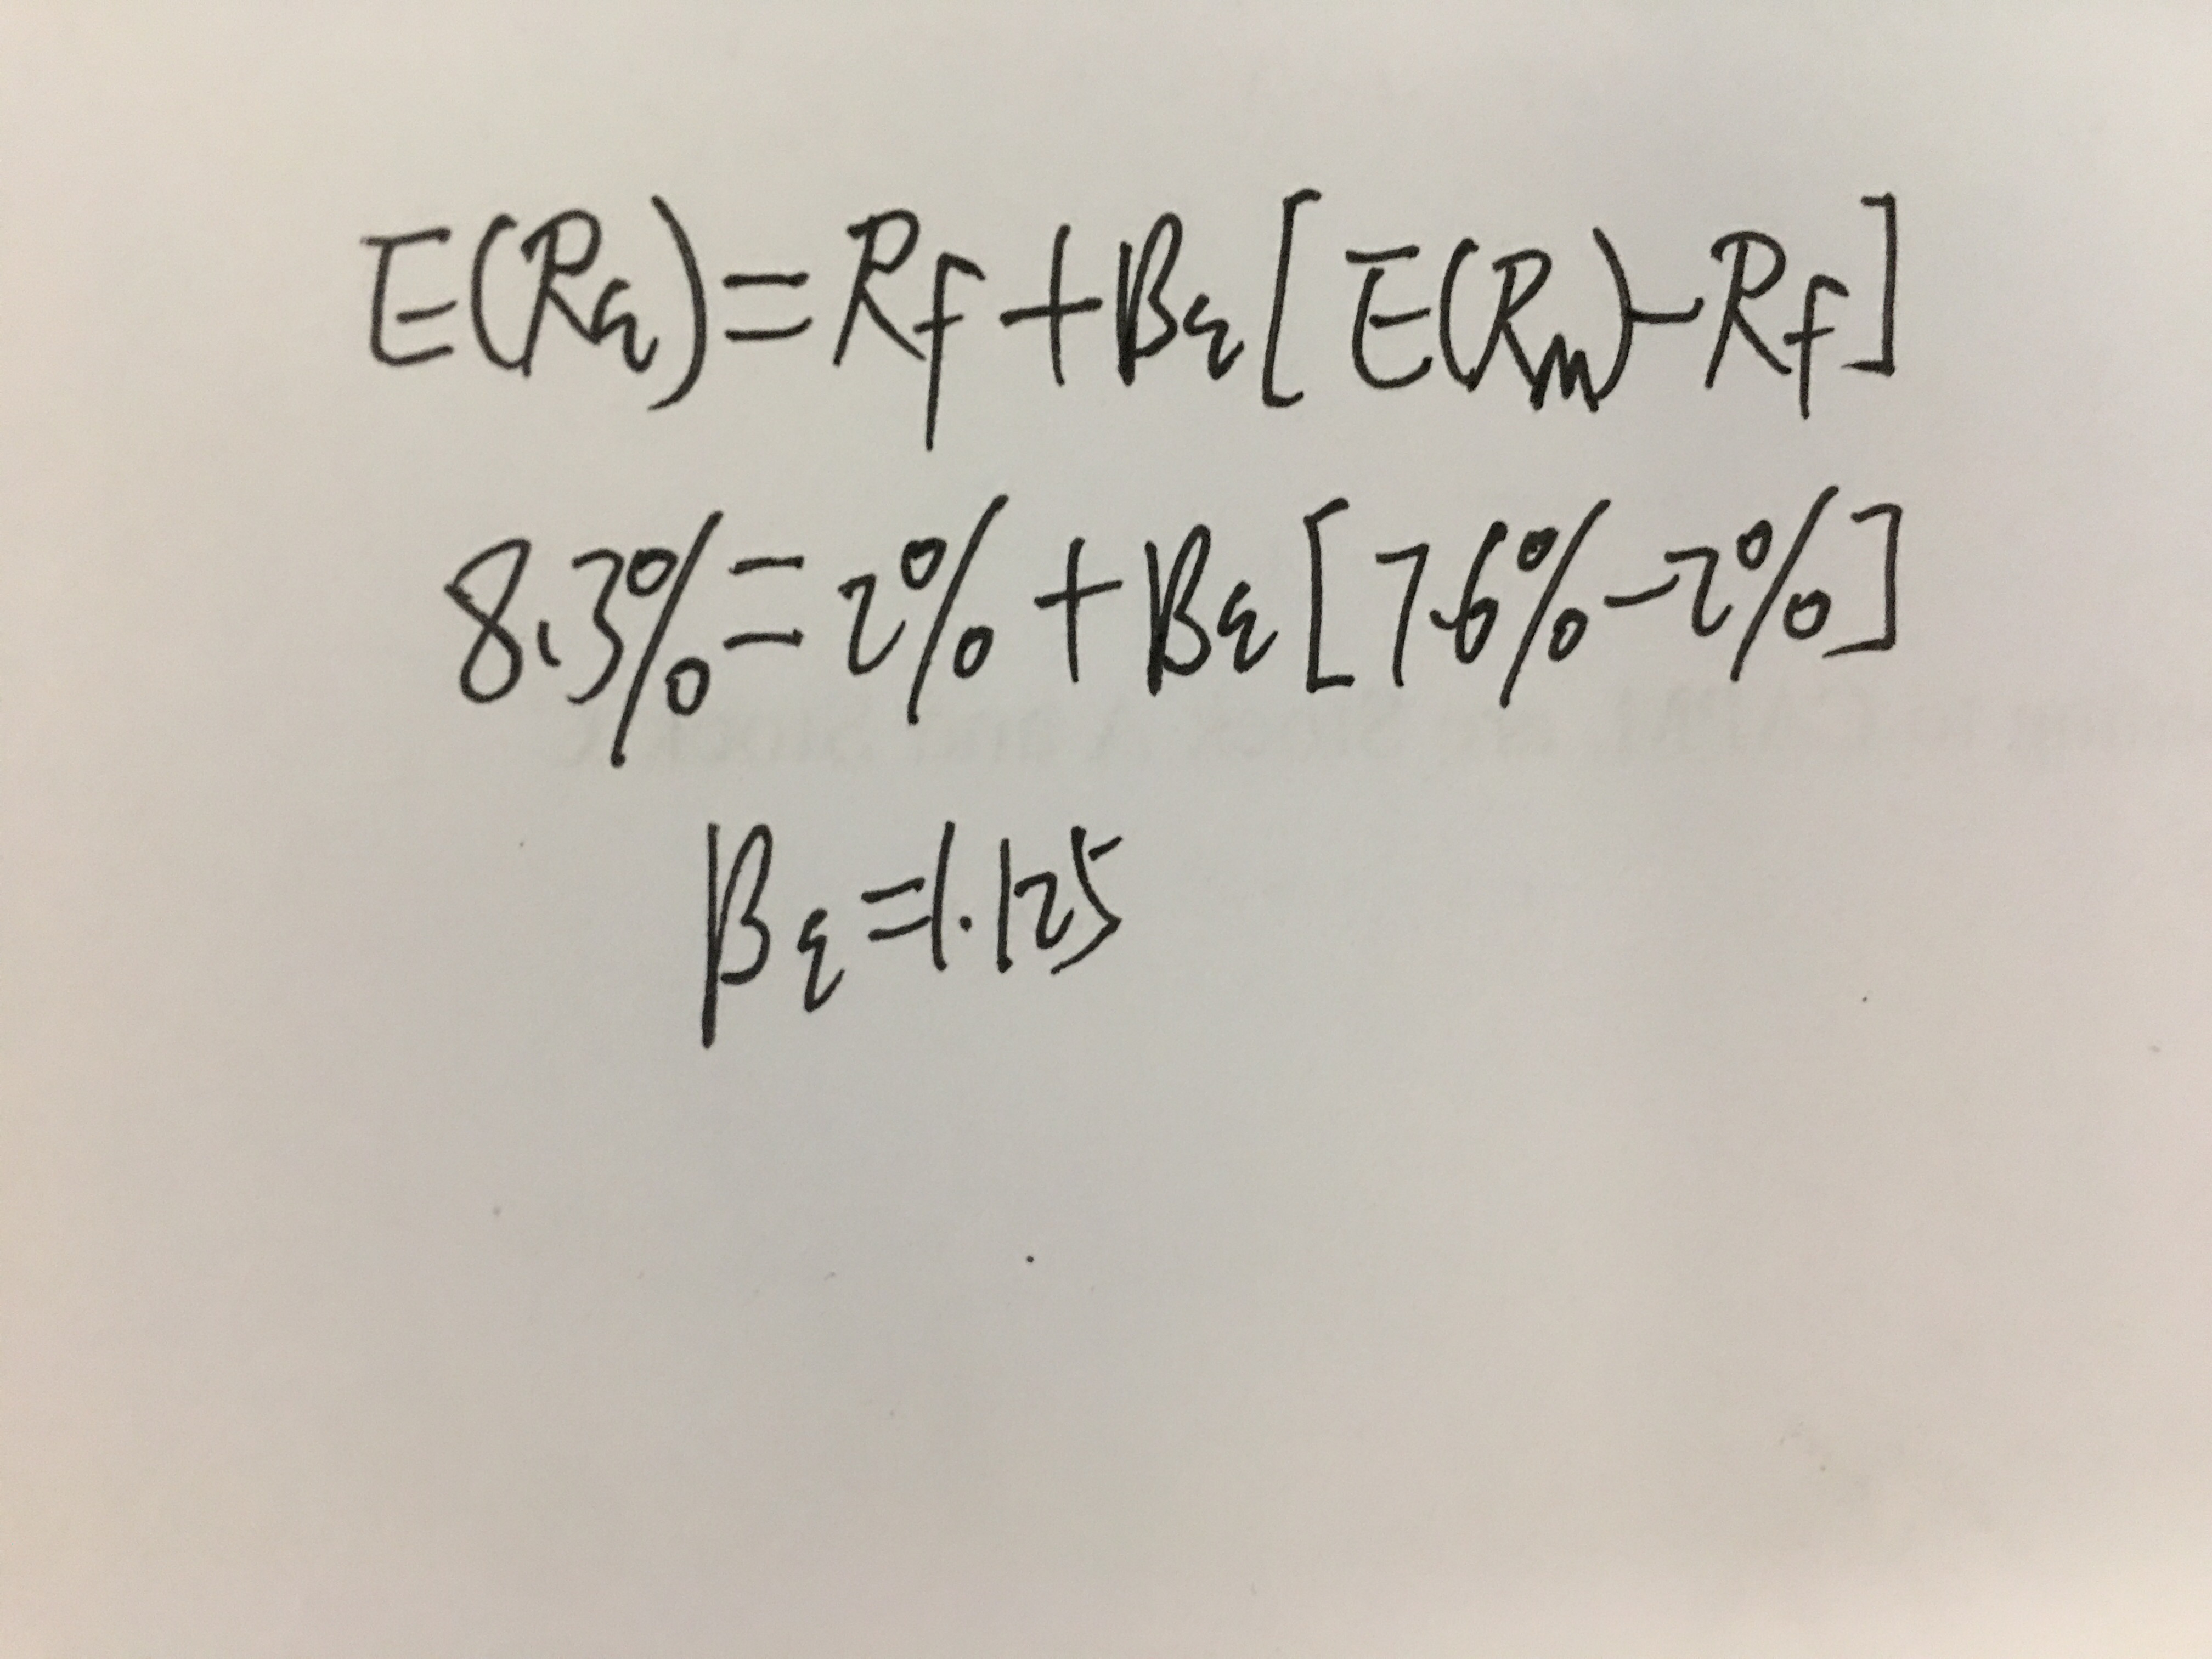 E(Rε) = Rf + βε [E(Rm) - Rf]
8.3% = 2% + βε [7.6% - 2%]
βε = 1.125